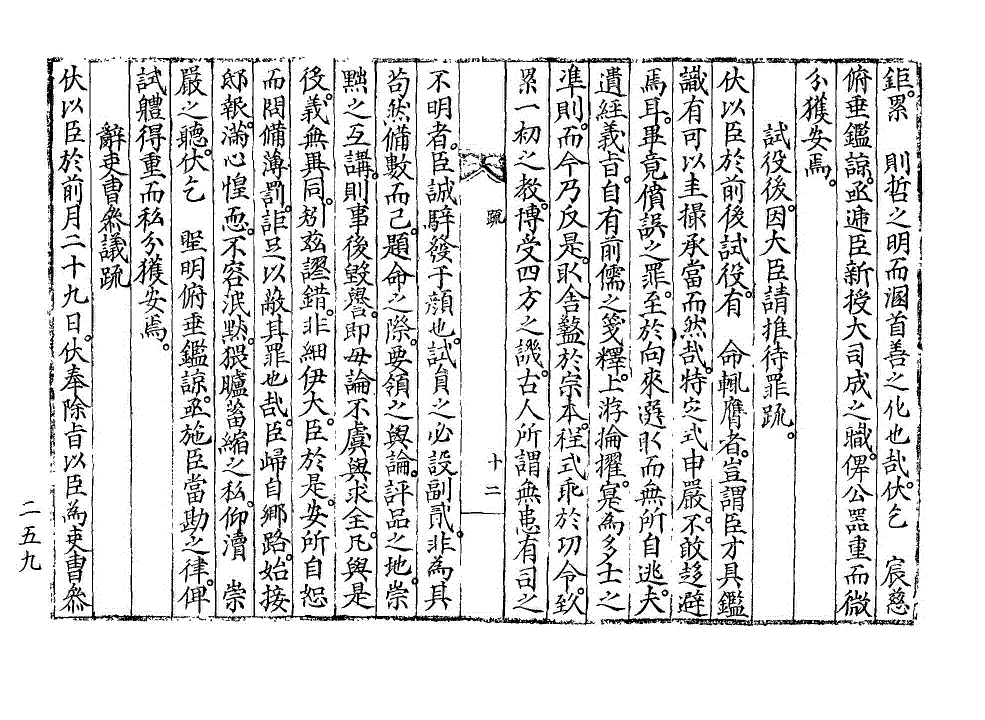 鉅累　則哲之明而溷首善之化也哉。伏乞　宸慈
俯垂鑑諒。亟遞臣新授大司成之職。俾公器重而微
分獲安焉。
試役後。因大臣請推待罪疏。
伏以臣於前後試役。有　命輒膺者。豈謂臣才具鑑
識有可以圭撮承當而然哉。特以式申嚴。不敢趍避
焉耳。畢竟僨誤之罪。至於向來選取而無所自逃。夫
遺經義旨。自有前儒之箋釋。上游掄擢。寔爲多士之
準則。而今乃反是。取舍盭於宗本。程式乖於功令。致
累一初之敎。博受四方之譏。古人所謂無患有司之
疏
十二
不明者。臣誠騂發于顔也。試員之必設副貳。非爲其
苟然備數而已。題命之際。要領之輿論。評品之地。崇
黜之互講。則事後毀譽。卽毋論不虞與求全。凡與是
役。義無異同。矧玆謬錯。非細伊大。臣於是。安所自恕
而問備薄罰。詎足以蔽其罪也哉。臣歸自鄕路。始接
邸報。滿心惶恧。不容泯默。猥臚蓄縮之私。仰瀆　崇
嚴之聽。伏乞　聖明俯垂鑑諒。亟施臣當勘之律。俾
試體得重而私分獲安焉。
辭吏曹參議疏
伏以臣於前月二十九日。伏奉除旨以臣爲吏曹參
二五九